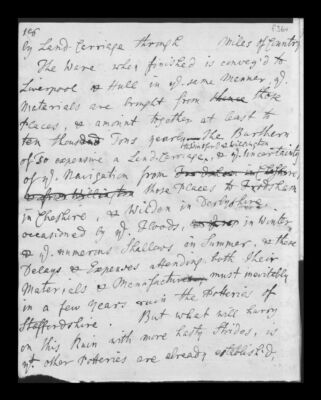 by Land Carriage through Miles of Country
The Ware when finished is convey'd to
Liverpool & Hull in yᵉ same Manner, yᵉ
Materials are brought from those
places, & amount together at least to
ten thousand Tons yearly. The Burthern
of so expensive a Land Carriage, & yᵉ Uncertainty
of yᵉ Navigation from
those Places to Frodsham
in Cheshire, & Wilden in Derbyshire
occasioned by yᵉ Floods, in Winter
& yᵉ numerous Shallows in Summer, & these
Delays & Expenses attending both their
Materials & Manufactures, must inevitably
in a few Years ruin the Potteries of
Staffordshire. But what will hurry
on this Ruin with more hasty Strides, is
yᵗ other Potteries are already establish'd,